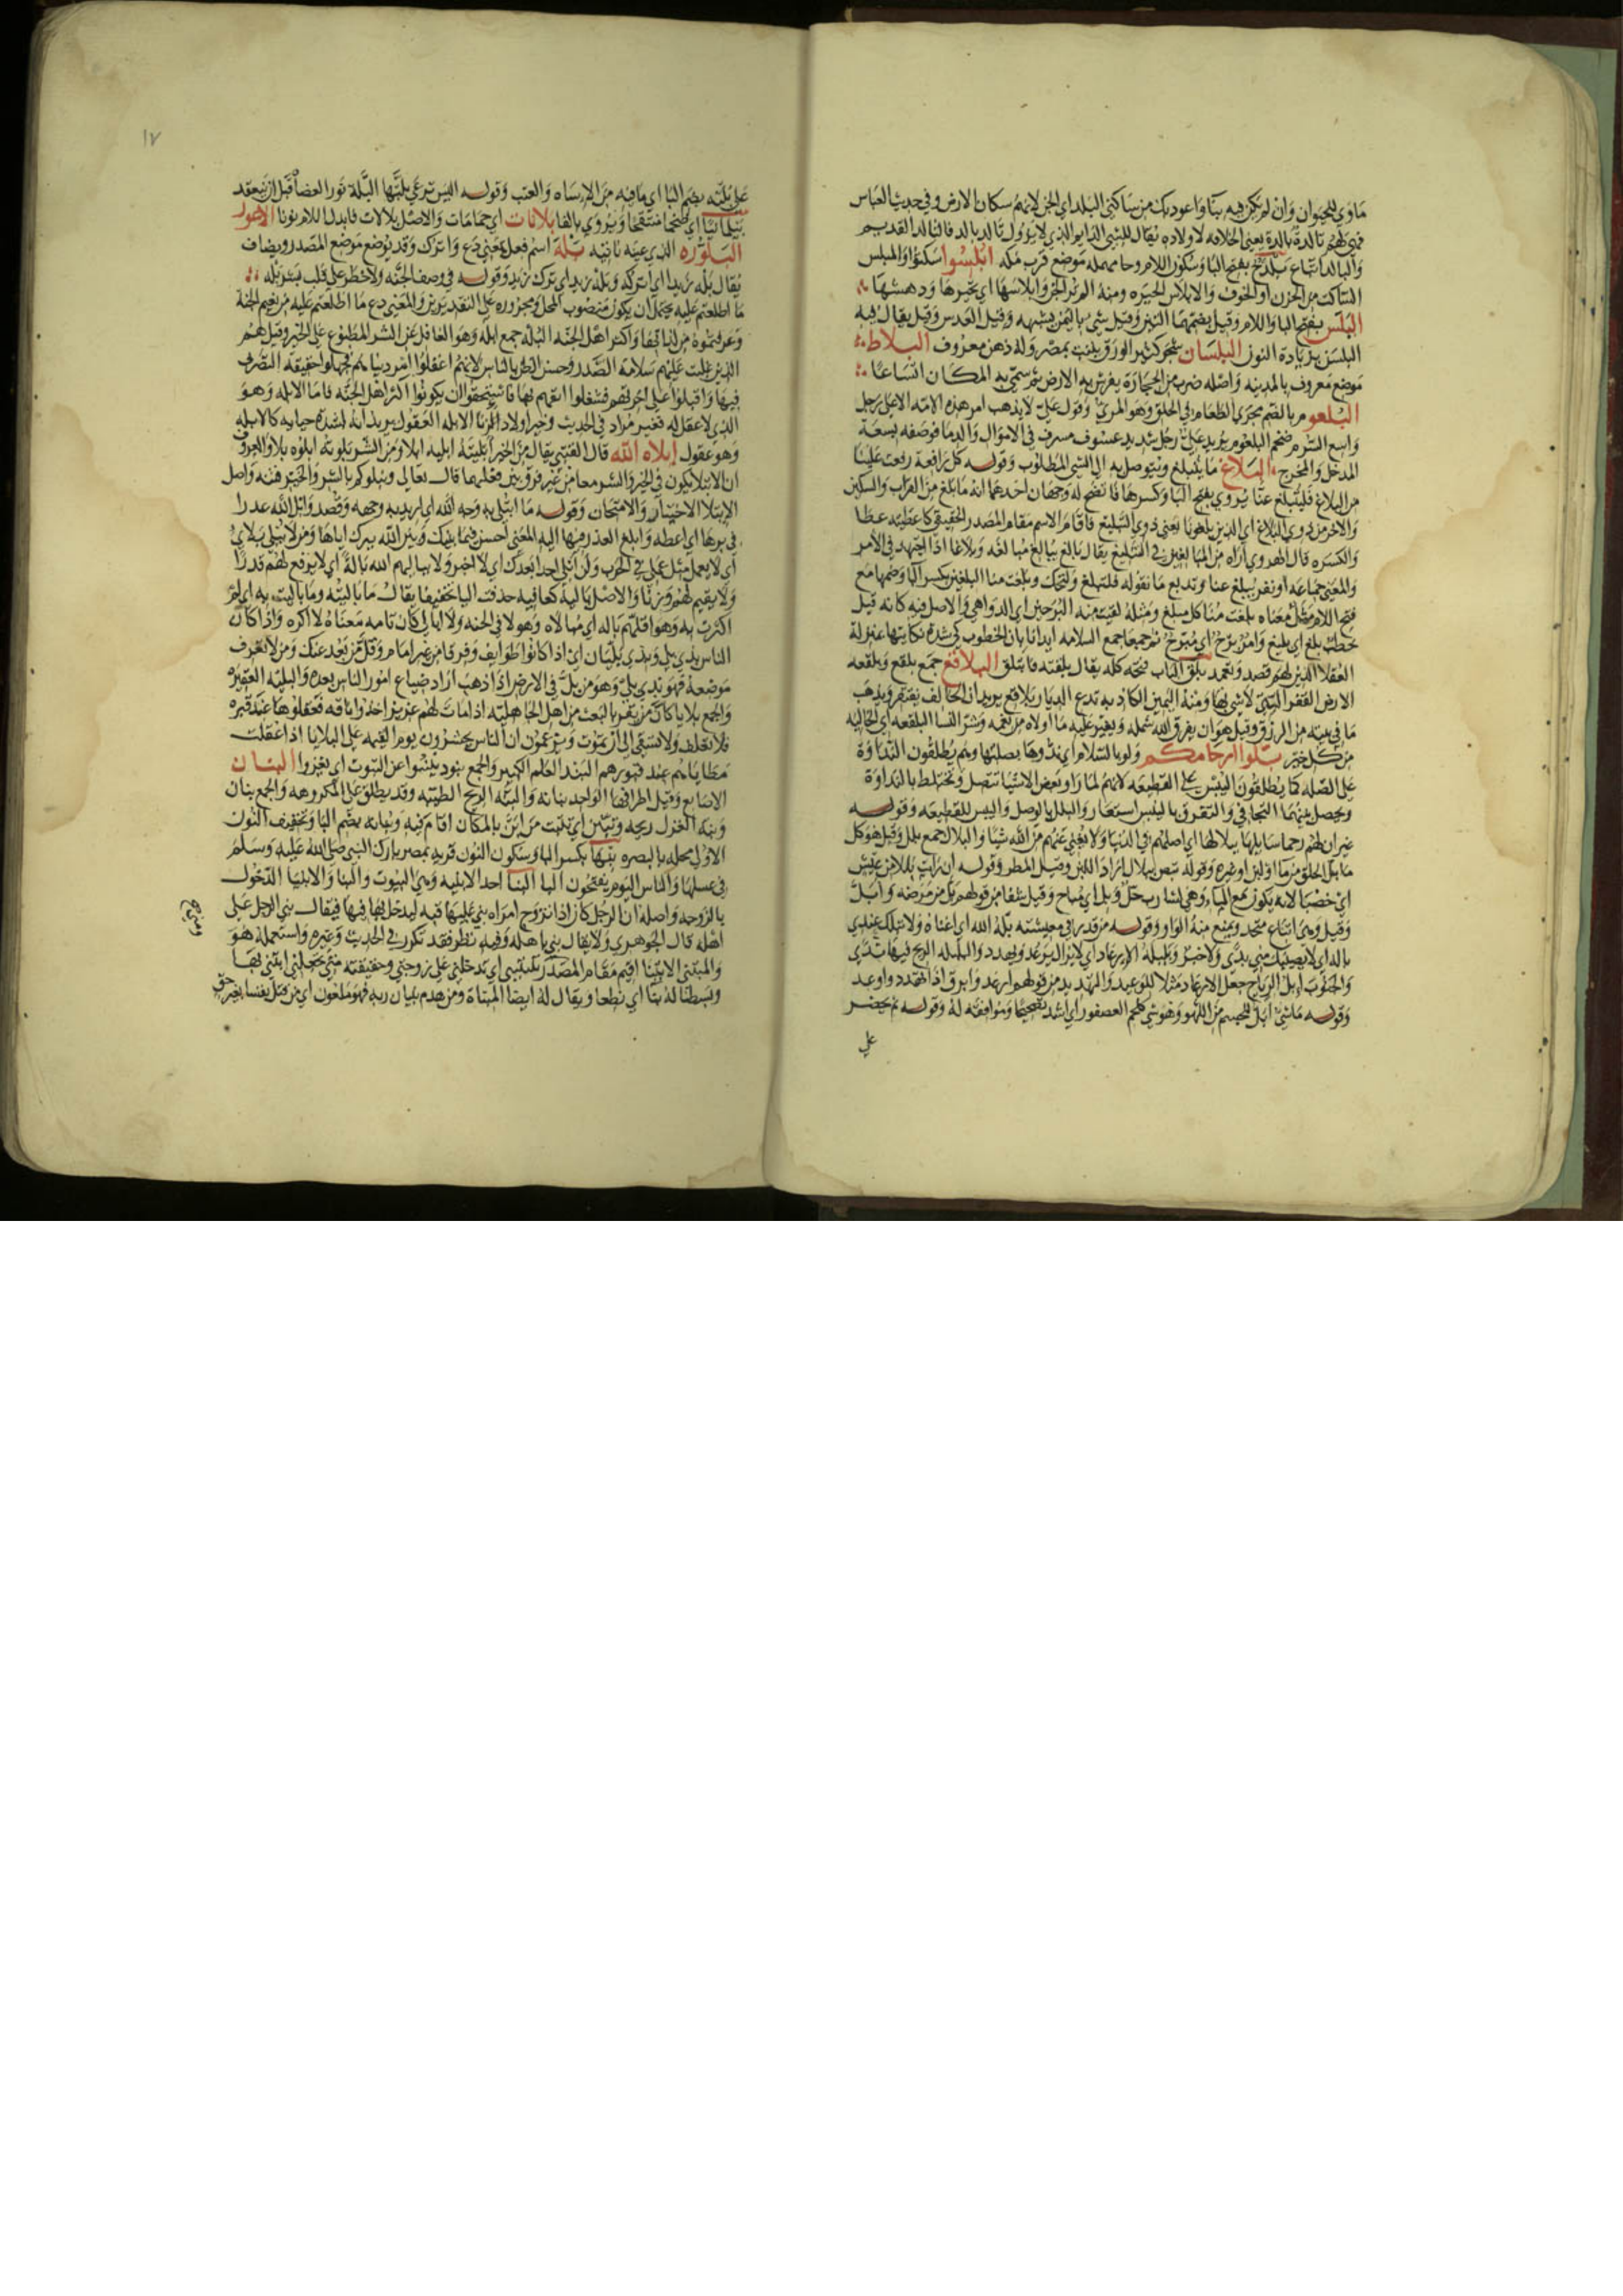 مأوى للحيوان وان لم يكن فيه بنا واعوذ بك من ساكني البلد اي الجن لانهم سكان الارض وفي حديث العباس
فهي لهم تالدة بالدة يعني الخلافه لاولاده يقال للشي الدايم الذي لا يزول تالد بالد فالتالد القديم
والبالد اتباع بلدح بفتح البا وسكون اللام وحا مهمله موضع قرب مكه ابلسوا سكنوا والمبلس
الساكت من الحزن او الخوف والابلاس الحيره ومنه الم تر الجن وابلاسها اي تحيرها ودهشها
البلس بفتح البا واللام وقيل بضمهما التين وقيل شي باليمن يشبهه وقيل العدس وقيل يقال فيه
البلسن بزيادة النون البلسان شجر كثير الورق ينبت بمصر وله دهن معروف البلاط
موضع معروف بالمدينه واصله ضرب من الحجارة يفرش به الارض ثم سمي به المكان اتساعا
البلعوم بالضم مجرى الطعام في الحلق وهو المرئ وقول علي لا يذهب امر هذه الامه الا على رجل
واسع السرم ضخم البلعوم يريد على رجل شديد عسوف مسرف في الاموال والدما فوصفه بسعة
المدخل والمخرج البلاغ ما يتبلغ ويتوصل به الى الشي المطلوب وقوله كل رافعة رفعت علينا
من البلاغ فليبلغ عنا يروى بفتح البا وكسرها فالفتح له وجهان احدهما انه ما بلغ من القران والسنن
والاخر من ذوي البلاغ اي الذين بلغونا يعني ذوي التبليغ فاقام الاسم مقام المصدر الحقيقي كاعطيته عطا
والكسره قال الهروي اراه من المبالغين في التبليغ يقال بالغ يبالغ مبالغه وبلاغا اذا اجتهد في الامر
والمعنى كل جماعه او نفر يبلغ عنا وتذيع ما نقوله فلتبلغ ولتحك وبلغت منا البلغين بكسر البا وضمها مع
فتح اللام مثل معناه بلغت منا كل مبلغ ومثله لقيت منه البرحين اي الدواهي والاصل فيه كانه قيل
خطب بلغ اي بليغ وامر برح اي مبرح ثم جمعا جمع السلامه ايذانا بان الخطوب في شدة نكايتها بمنزلة
العقلا الذين لهم قصد وتعمد بلق الباب فتحه كله يقال بلقته فانبلق البلاقع جمع بلقع وبلقعه
الارض القفر التي لا شي بها ومنه اليمين الكاذبه تدع الديار بلاقع يريد ان الحالف يفتقر ويذهب
ما في بيته من الرزق وقيل هو ان يفرق الله شمله ويغير عليه ما اولاه من نعمه وشر النسا البلقعه اي الخاليه
من كل خير بلوا ارحامكم ولو بالسلام اي ندوها بصلتها وهم يطلقون النداوة
على الصله كما يطلقون اليبس على القطيعه لانهم لما راوا بعض الاشيا تتصل وتختلط بالنداوة
ويحصل بينهما التجافي والتفرق باليبس استعاروا البلل بالوصل واليبس للقطيعه وقوله
غير ان لهم رحما سابلها ببلالها اي اصلهم في الدنيا ولا يغني عنهم من الله شيا والبلال جمع بلل وقيل هو كل
ما بل الحلق من ما او لبن او غيره وقوله تبض ببلال اراد اللبن وقيل المطر وقوله ان رايت بللا من عيش
اي خصبا لانه يكون مع الماء وهي لشارب حل وبل اي مباح وقيل شفا من قولهم بل من مرضه وابل
وقيل وهي اتباع لحل ويمنع منه الواو وقوله من قدر في معيشته بله الله اي اغناه ولا تبلك عندي
بالة اي لا يصيبك مني ندى ولا خير
وقوله ما شي ابل للجسم من اللهو وهو شي كلحم العصفور اي اشد تصحيحا وموافقه له وقوله ثم يحضر
على
١٧
على بلته بضم البا اي ما فيه من الاساه والعتب وقوله الست ترعى بلتها البلة نور العضاه قبل ان ينعقد
بلاناات اي حمامات والاصل بلالات فابدل اللام نونا الاعور
البلوره الذي عينه ناتيه بله اسم فعل بمعنى دع واترك وقد يوضع موضع المصدر ويضاف
يقال بله زيدا اي اتركه وبله زيد اي ترك زيد وقوله في وصف الجنه ولا خطر على قلب بشر بله
ما اطلعتم عليه يحتمل ان يكون منصوب المحل ومجروره على التقديرين والمعنى دع ما اطلعتم عليه من نعيم الجنة
وعرفتموه من لذاتها واكثر اهل الجنه البله جمع ابله وهو الغافل عن الشر المطبوع على الخير وقيل هم
الذين غلبت عليهم سلامة الصدر وحسن الظن بالناس لانهم اغفلوا امر دنياهم فجهلوا حقيقة التصرف
فيها واقبلوا على اخرتهم فشغلوا انفسهم بها فاستحقوا ان يكونوا اكثر اهل الجنه فاما الابله وهو
الذي لا عقل له فغير مراد في الحديث وخير اولادنا الابله العقول يريد انه لشدة حيايه كالابله
وهو عقول ابلاه الله قال القتيبي يقال من الخير ابليته ابليه ابلا ومن الشر بلوته ابلوه بلا والمعروف
ان الابتلا يكون في الخير والشر معا من غير فرق بين فعليهما قال تعالى ونبلوكم بالشر والخير فتنه واصل
الابتلا الاختبار والامتحان وقوله ما ابتلي به وجه الله اي اريد به وجهه وقصد وابل الله عذرا
في برها اي اعطه وابلغ العذر فيها اليه المعنى احسن فيما بينك وبين الله ببرك اياها ومن لا يبلي بلائي
اي لا يعمل مثل عملي في الحرب ولن ابلي احدا بعدك اي لا اخبر ولا يباليهم الله بالة اي لا يرفع لهم قدرا
ولا يقيم لهم وزنا والاصل بالية كعافيه حذفت اليا تخفيفا يقال ما باليته وما باليت به اي لم
اكترث به وهو اقلهم به باله اي مبالاه وهولا في الجنه ولا ابالي كان تامه معناه لا اكره واذا كان
الناس بذي بلي وبذي بليان اي اذا كانوا طوايف وفرقا من غير امام وكل من بعد عنك ومن لا تعرف
موضعه فهو بذي بلي وهو من بل في الارض اذا ذهب اراد ضياع امور الناس بعده والبليه العقيره
والجمع بلايا كان من يقر بالبعث من اهل الجاهليه اذا مات لهم عزيز اخذوا ناقه فعقلوها عند قبره
فلا تعلف ولا تسقى الى ان تموت ويزعمون ان الناس يحشرون يوم القيمه على البلايا اذا عقلت
مطاياهم عند قبورهم البند العلم الكبير والجمع بنود بنسوا عن البيوت اي البنان
الاصابع وقيل اطرافها الواحد بنانه والبنه الريح الطيبه وقد يطلق على المكروهه والجمع بنان
وبنه الغزل ريحه وتبنن اي تثبت من ابن بالمكان اقام فيه وبنانه بضم البا وتخفيف النون
الاولى محله بالبصره بنها بكسر البا وسكون النون قريه بمصر بارك النبي صلى الله عليه وسلم
في عسلها والناس اليوم يفتحون البا البنا احد الابنيه وهي البيوت والبنا والابتنا الدخول
بالزوجه واصله ان الرجل كان اذا تزوج امراه بنى عليها قبه ليدخل بها فيها فيقال بنى الرجل على
اهله قال الجوهري ولا يقال بنى باهله وفيه نظر فقد تكرر في الحديث وغيره واستعمله هو
والمبتنى الابتنا اقيم مقام المصدر تبنيني اي تدخلني على زوجتي وحقيقته متى تجعلني ابتني بها
وبسطنا له بنا اي نطعا ويقال له ايضا المبناة ومن هدم بنيان ربه فهو ملعون اي من قتل نفسا بغير حق